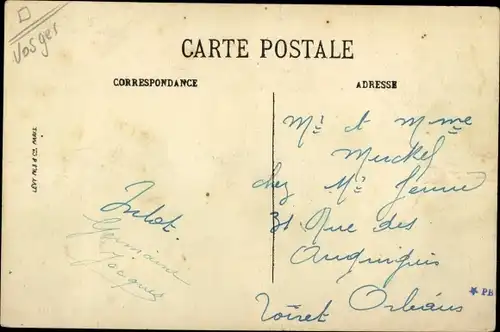 Vosges
CARTE POSTALE
CORRESPONDANCE
ADRESSE
LÉVY FILS & Cie, PARIS
Mr et Mme
Merckel
chez Mr
31 Rue des
Loiret Orléans
Germaine
Jacques
* PB